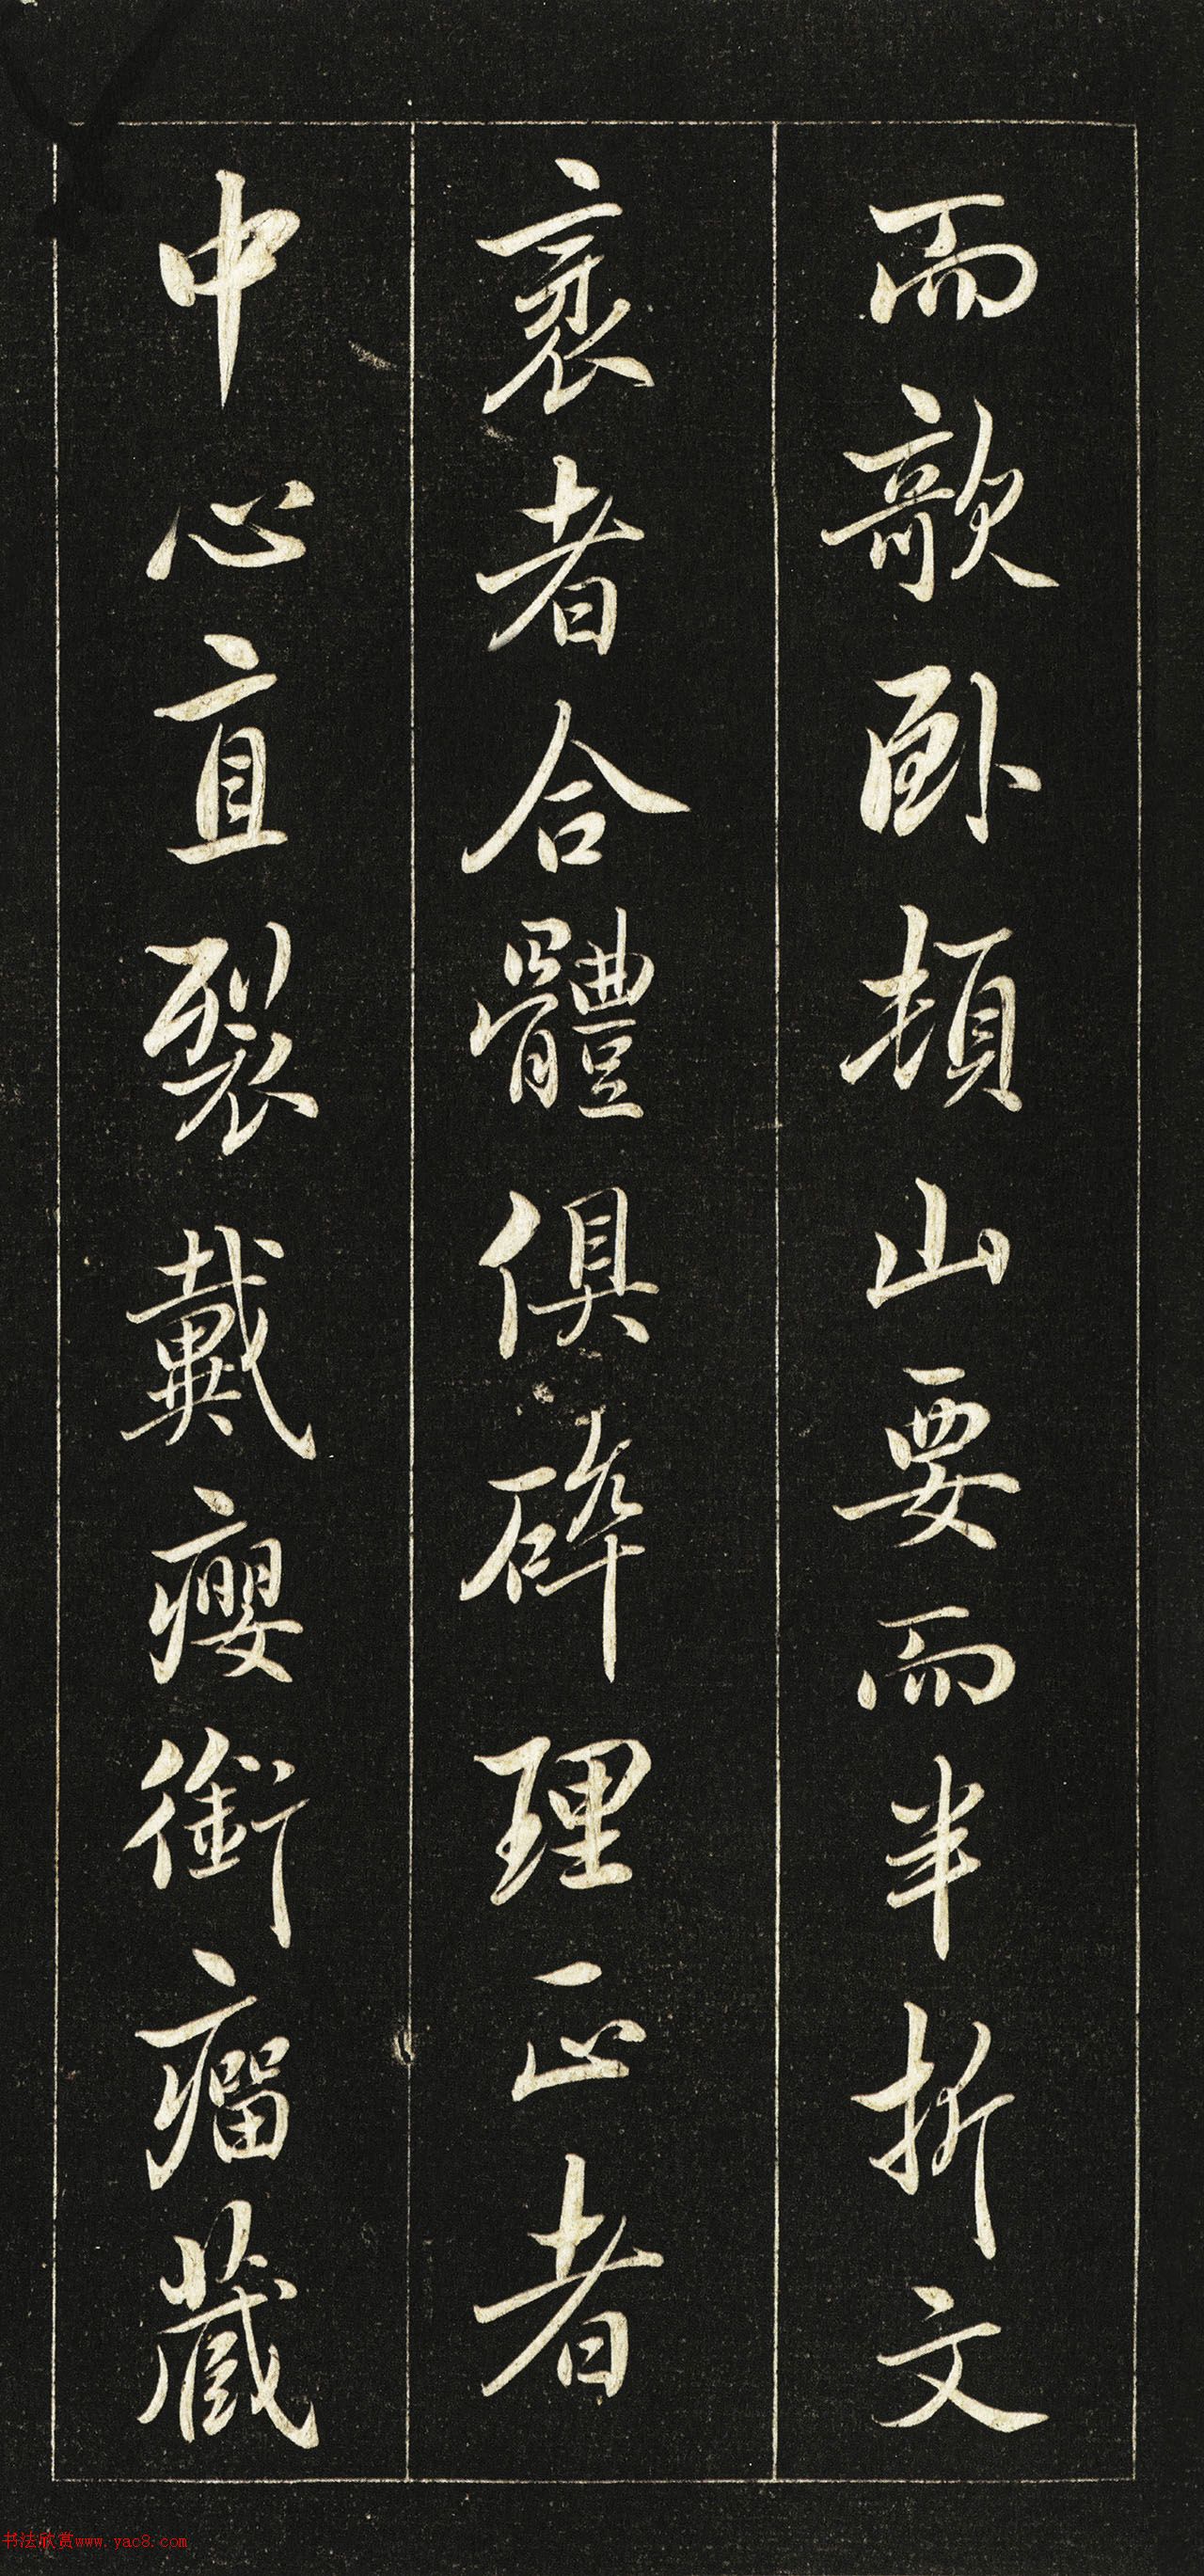 而欹臥頓山要而半折文
衺者合體俱碎理正者
中心直裂戴癭銜瘤藏
书法欣赏www.yac8.com